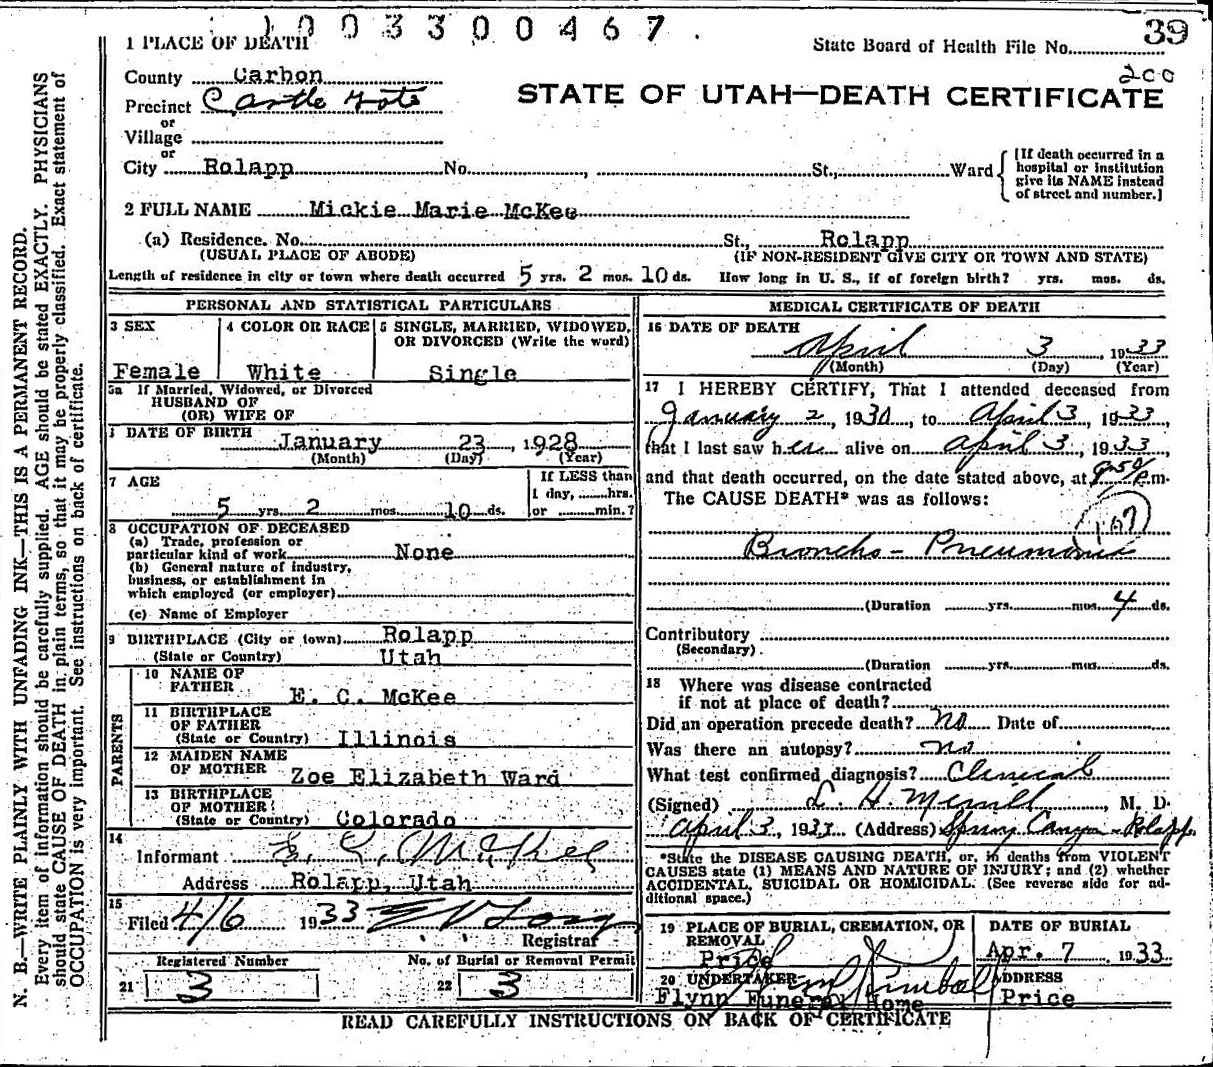 1003300467.
39
1 PLACE OF DEATH
State Board of Health File No.
200
County Carbon
STATE OF UTAH—DEATH CERTIFICATE
Precinct Castle Gate
or
Village
or
City Rolapp No. , St., Ward
[If death occurred in a hospital or institution give its NAME instead of street and number.]
2 FULL NAME Mickie Marie McKee
(a) Residence. No. St., Rolapp
(USUAL PLACE OF ABODE) (IF NON-RESIDENT GIVE CITY OR TOWN AND STATE)
Length of residence in city or town where death occurred 5 yrs. 2 mos. 10 ds. How long in U. S., if of foreign birth? yrs. mos. ds.
PERSONAL AND STATISTICAL PARTICULARS
3 SEX
Female
4 COLOR OR RACE
White
5 SINGLE, MARRIED, WIDOWED,
OR DIVORCED (Write the word)
Single
5a If Married, Widowed, or Divorced
HUSBAND OF
(OR) WIFE OF
DATE OF BIRTH January 23, 1928
(Month) (Day) (Year)
7 AGE
5 yrs. 2 mos. 10 ds.
If LESS than
1 day, hrs.
or min.?
8 OCCUPATION OF DECEASED
(a) Trade, profession or
particular kind of work None
(b) General nature of industry,
business, or establishment in
which employed (or employer)
(c) Name of Employer
9 BIRTHPLACE (City or town) Rolapp
(State or Country) Utah
PARENTS
10 NAME OF
FATHER E. C. McKee
11 BIRTHPLACE
OF FATHER
(State or Country) Illinois
12 MAIDEN NAME
OF MOTHER Zoe Elizabeth Ward
13 BIRTHPLACE
OF MOTHER
(State or Country) Colorado
14
Informant E. C. McKee
Address Rolapp, Utah
15
Filed 4/6 1933
Registrar
Registered Number No. of Burial or Removal Permit
21 3 22 3
MEDICAL CERTIFICATE OF DEATH
16 DATE OF DEATH
April 3, 1933
(Month) (Day) (Year)
17 I HEREBY CERTIFY, That I attended deceased from
January 2, 1930, to April 3, 1933,
that I last saw her alive on April 3, 1933,
and that death occurred, on the date stated above, at P.m.
The CAUSE DEATH* was as follows:
107
Broncho-Pneumonia
(Duration yrs. mos. 4 ds.
Contributory
(Secondary).
(Duration yrs. mos. ds.
18 Where was disease contracted
if not at place of death?
Did an operation precede death? no Date of
Was there an autopsy? no
What test confirmed diagnosis? Clinical
(Signed) L. H. Merrill, M. D.
April 3, 1933 (Address) Spring Canyon - Rolapp
*State the DISEASE CAUSING DEATH, or, in deaths from VIOLENT
CAUSES state (1) MEANS AND NATURE OF INJURY; and (2) whether
ACCIDENTAL, SUICIDAL OR HOMICIDAL. (See reverse side for ad-
ditional space.)
19 PLACE OF BURIAL, CREMATION, OR
REMOVAL
Price
DATE OF BURIAL
Apr. 7 1933
20 UNDERTAKER
Flynn Funeral Home
ADDRESS
Price
READ CAREFULLY INSTRUCTIONS ON BACK OF CERTIFICATE
N. B.—WRITE PLAINLY WITH UNFADING INK—THIS IS A PERMANENT RECORD.
Every item of information should be carefully supplied. AGE should be stated EXACTLY. PHYSICIANS
should state CAUSE OF DEATH in plain terms, so that it may be properly classified. Exact statement of
OCCUPATION is very important. See instructions on back of certificate.